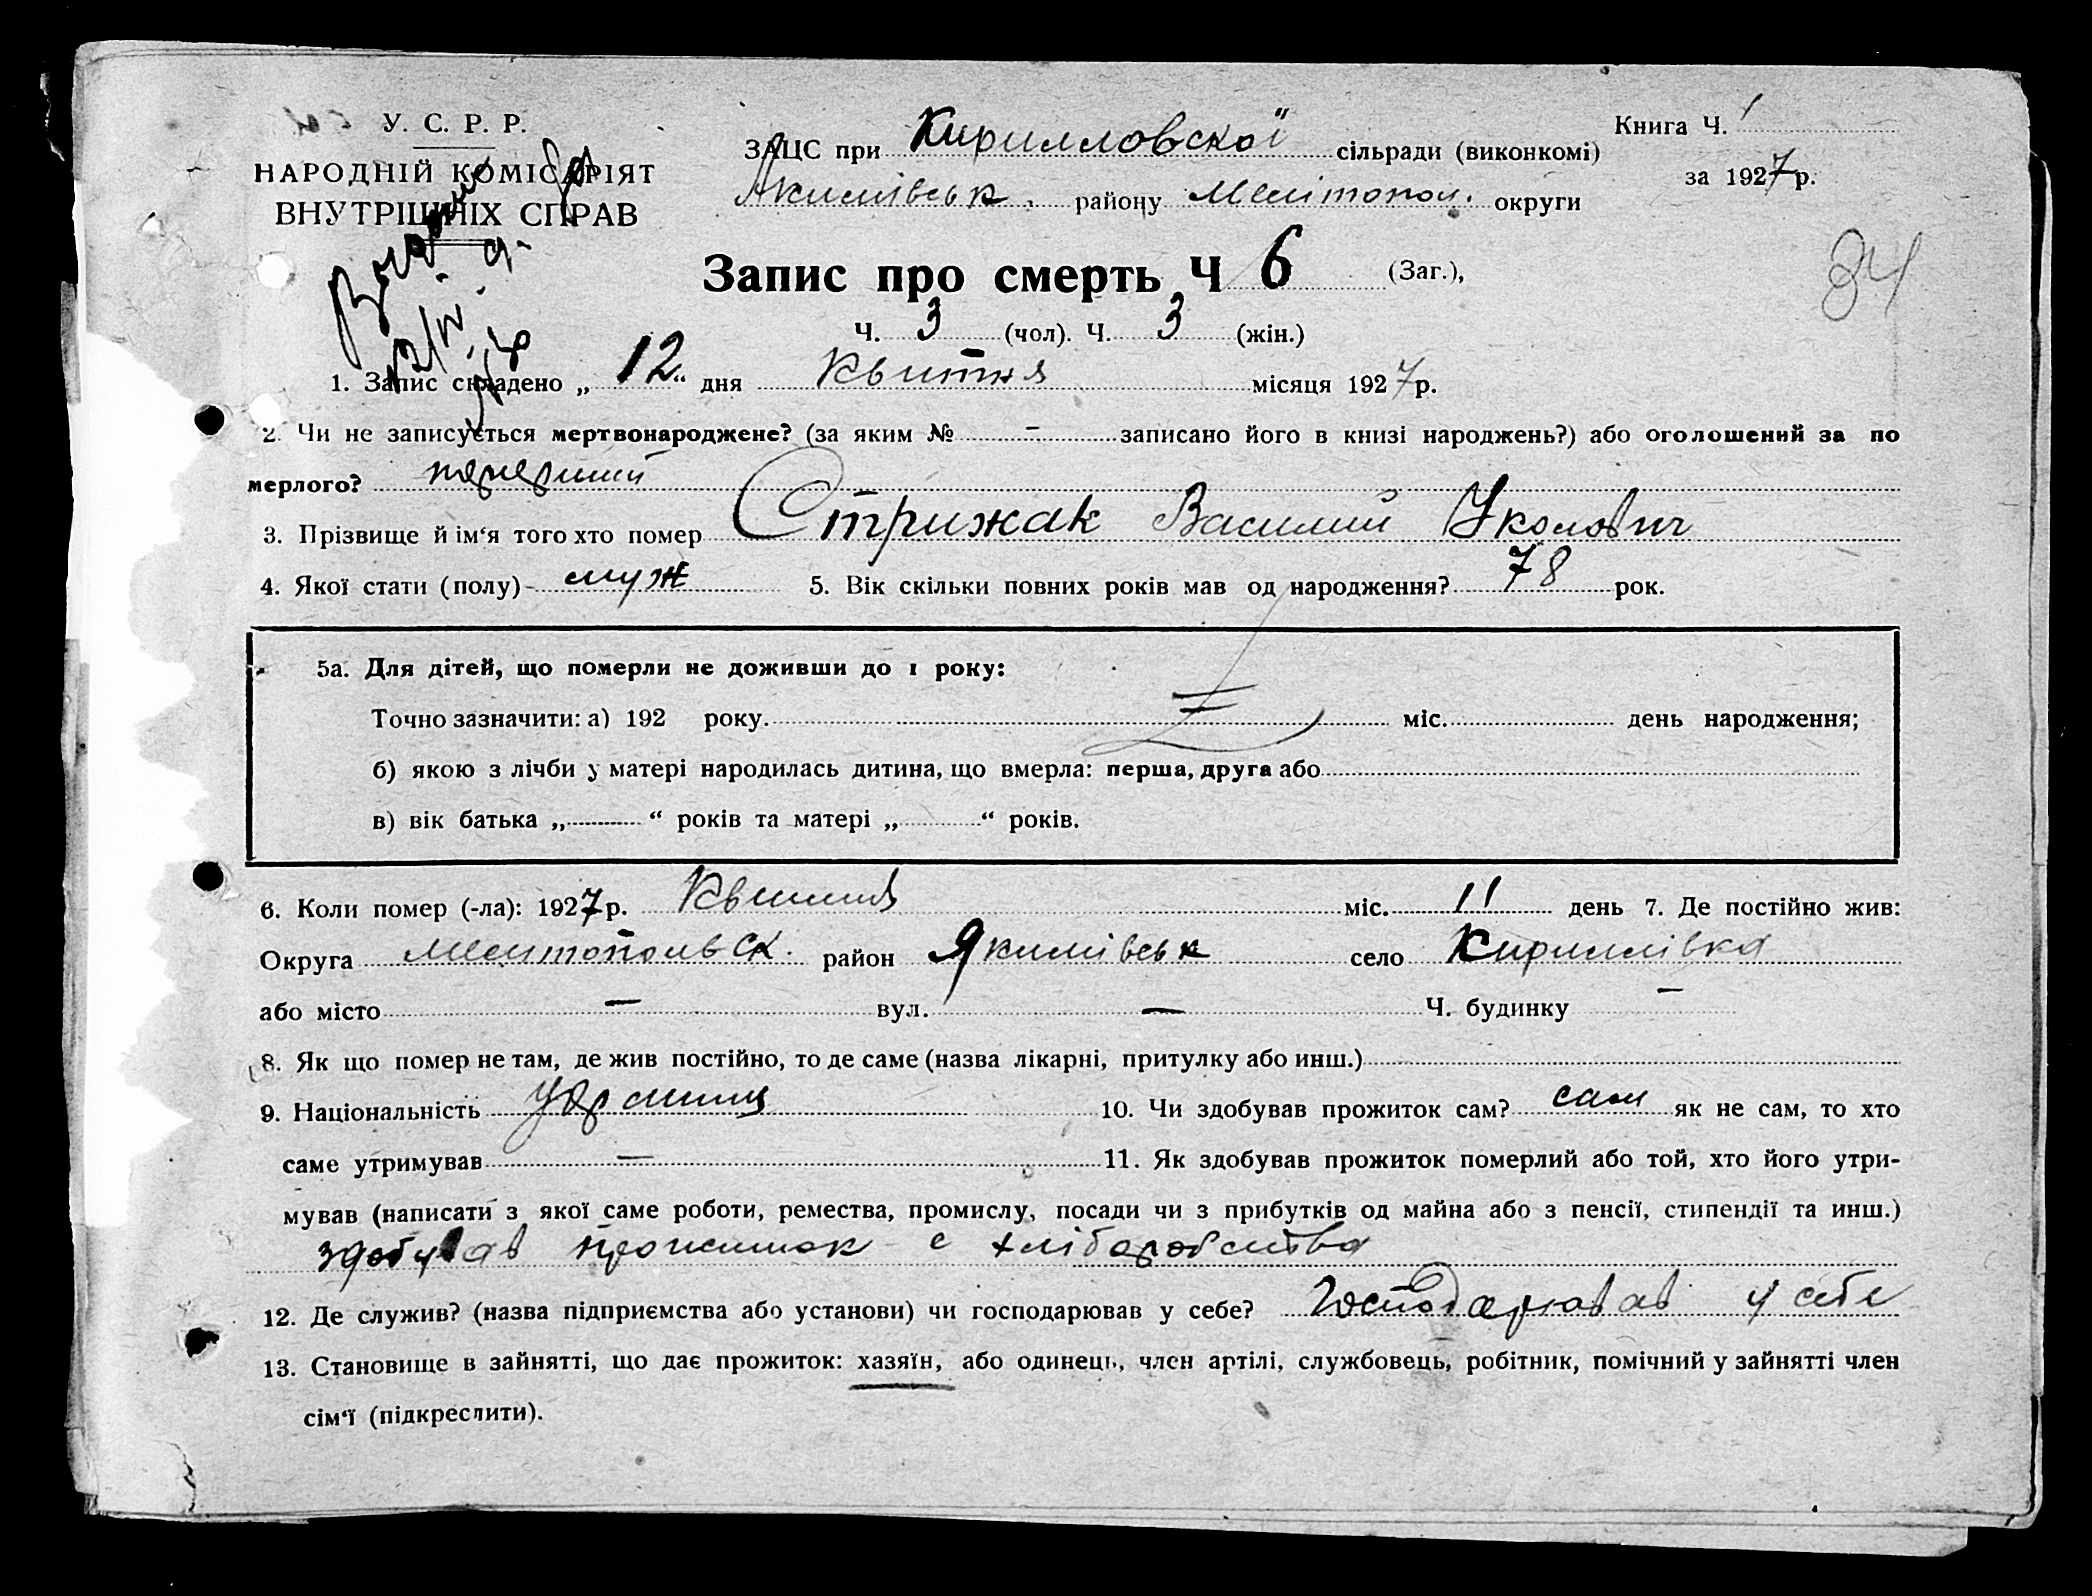 У. С. Р. Р.
НАРОДНІЙ КОМІСАРІЯТ
ВНУТРІШНІХ СПРАВ
ЗАЦС при Кирилловскої сільради (виконкомі)
Акимівськ. району Мелітопол. округи
Книга Ч. 1
за 1927 р.
34
Запис про смерть Ч 6 (Заг.),
Ч. 3 (чол). Ч. 3 (жін.)
1. Запис складено „ 12 “ дня Квитня місяця 1927 р.
2. Чи не записується мертвонароджене? (за яким № - записано його в книзі народжень?) або оголошений за по
мерлого?
3. Прізвище й ім‘я того хто помер Стрижак Василий Уколович
4. Якої стати (полу) - муж 5. Вік скільки повних років мав од народження? 78 рок.
5а. Для дітей, що померли не доживши до 1 року:
Точно зазначити: а) 192 року. міс. день народження;
б) якою з лічби у матері народилась дитина, що вмерла: перша, друга або
в) вік батька „ “ років та матері „ “ років.
6. Коли помер (-ла): 1927 р. Квитня міс. 11 день 7. Де постійно жив:
Округа Мелитопольск. район Якимівськ село Кириллівка
або місто — вул. — Ч. будинку —
8. Як що помер не там, де жив постійно, то де саме (назва лікарні, притулку або инш.)
9. Національність 10. Чи здобував прожиток сам? сам як не сам, то хто
саме утримував — 11. Як здобував прожиток померлий або той, хто його утри-
мував (написати з якої саме роботи, ремества, промислу, посади чи з прибутків од майна або з пенсії, стипендії та инш.)
здобував прожиток с хліборобства
12. Де служив? (назва підприємства або установи) чи господарював у себе? Господарював у себе
13. Становище в зайнятті, що дає прожиток: хазяїн, або одинець, член артілі, службовець, робітник, помічний у зайнятті член
сім‘ї (підкреслити).